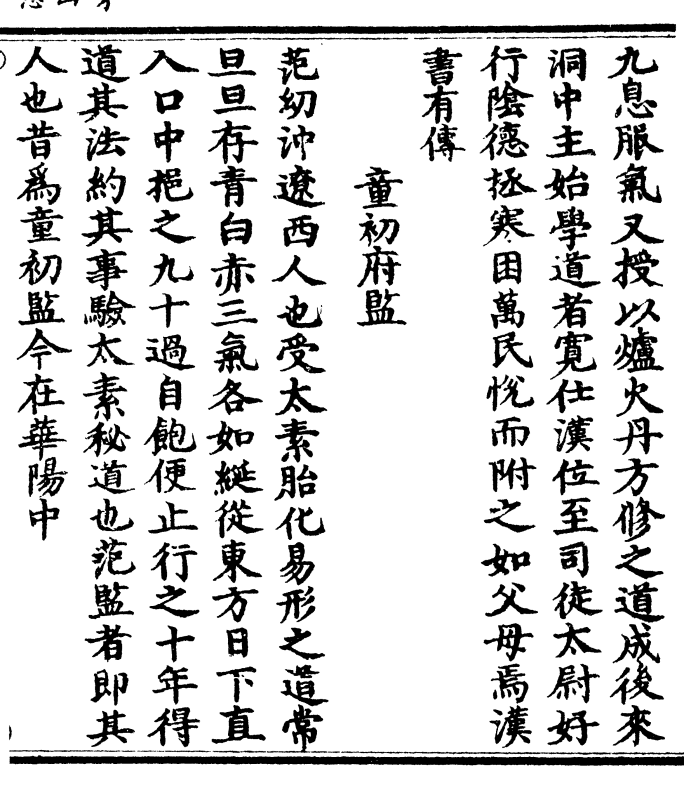 九息服氣又授以爐火丹方修之道成後來
洞中主始學道者寬仕漢位至司徒太尉好
行陰德拯寒困萬民悅而附之如父母焉漢
書有傳
童初府監
范幼沖遼西人也受太素胎化易形之道常
旦旦存青白赤三氣各如綖從東方日下直
入口中挹之九十過自飽便止行之十年得
道其法約其事驗太素秘道也范監者即其
人也昔爲童初監今在華陽中